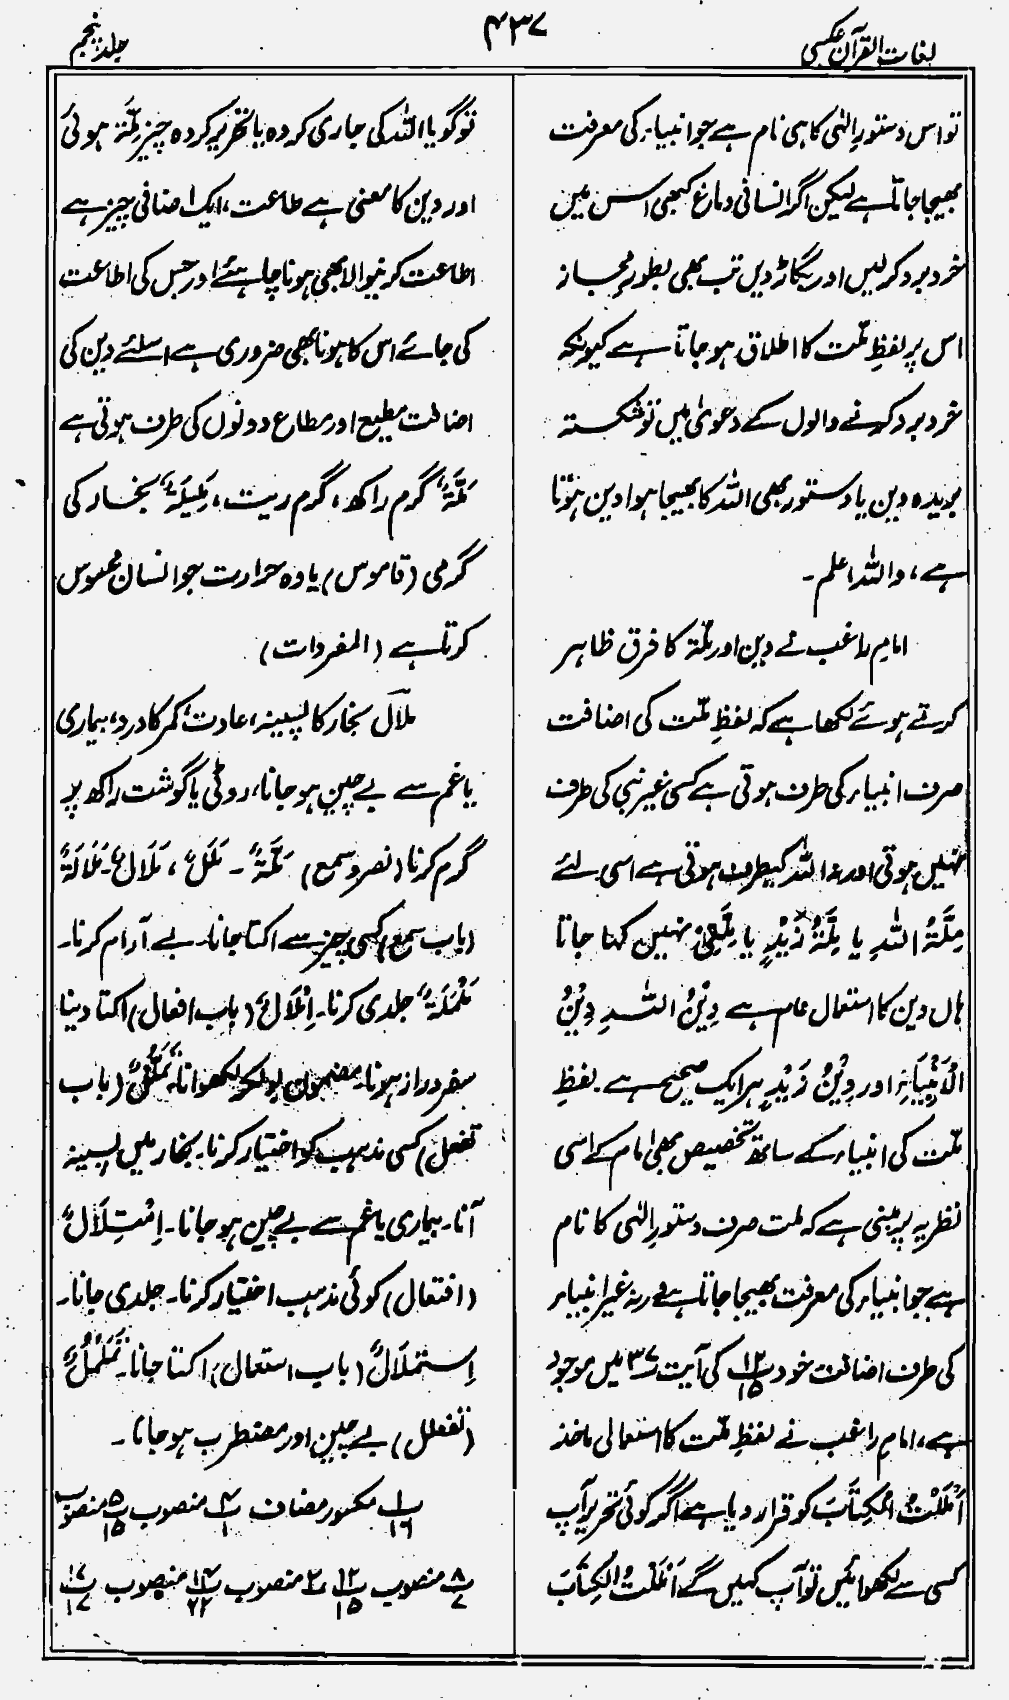 لغات القرآن عکسی
۴۳۷
جلد پنجم
تو اس دستورِ الٰہی کا ہی نام ہے جو انبیاء کی معرفت
بھیجا جاتا ہے لیکن اگر انسانی دماغ کبھی اس میں
خرد برد کر لیں اور بگاڑ دیں تب بھی بطورِ مجاز
اس پر لفظِ ملّت کا اطلاق ہو جاتا ہے کیونکہ
خرد برد کرنے والوں کے دعویٰ میں تو شکستہ
بریدہ دین یا دستور بھی اللہ کا بھیجا ہوا دین ہوتا
ہے، واللہ اعلم۔
امام راغب نے دین اور ملّۃ کا فرق ظاہر
کرتے ہوئے لکھا ہے کہ لفظِ ملّت کی اضافت
صرف انبیاء کی طرف ہوتی ہے کسی غیر نبی کی طرف
نہیں ہوتی اور نہ اللہ کیطرف ہوتی ہے اسی لئے
مِلَّۃُ اللہِ یا مِلَّۃُ زَیْدٍ یا مِلَّتِیْ نہیں کہا جاتا
ہاں دین کا استعمال عام ہے دِیْنُ اللہِ دِیْنُ
الْاَنْبِیَاءِ اور دِیْنُ زَیْدٍ ہر ایک صحیح ہے۔ لفظِ
ملّت کی انبیاء کے ساتھ تخصیص بھی امام کے اسی
نظریہ پر مبنی ہے کہ ملت صرف دستورِ الٰہی کا نام
ہے جو انبیاء کی معرفت بھیجا جاتا ہے ورنہ غیر انبیاء
کی طرف اضافت خود پ۱۲/۱۵ کی آیت ۳۷ میں موجود
ہے، امام راغب نے لفظِ ملّت کا استعمالی ماخذ
اَمْلَلْتُ الْکِتَابَ کو قرار دیا ہے اگر کوئی تحریر آپ
کسی سے لکھوائیں تو آپ کہیں گے اَمْلَلْتُ الْکِتَابَ
تو گویا اللہ کی جاری کردہ یا تحریر کردہ چیز مِلّۃ ہوئی
اور دین کا معنی ہے طاعت، ایک اضافی چیز ہے
اطاعت کرنیوالا بھی ہونا چاہئے اور جس کی اطاعت
کی جائے اس کا ہونا بھی ضروری ہے اسلئے دین کی
اضافت مطیع اور مطاع دونوں کی طرف ہوتی ہے
مَلَّۃٌ گرم راکھ، گرم ریت، مَلِیلَۃٌ بخار کی
گرمی (قاموس) یا وہ حرارت جو انسان محسوس
کرتا ہے (المفردات)
مَلَال بخار کا پسینہ، عادت، کمر کا درد، بیماری
یا غم سے بے چین ہو جانا، روٹی یا گوشت راکھ پر
گرم کرنا (نصر و سمع) مَلَّۃٌ۔ مَلَلٌ، مَلَالٌ۔ مَلَالَۃٌ
(باب سمع) کسی چیز سے اکتا جانا۔ بے آرام کرنا۔
مَلْمَلَۃٌ جلدی کرنا۔ اِمْلَالٌ (باب افعال) اکتا دینا
سفر دراز ہونا۔ مضمون بولکر لکھوانا۔ تَمَلُّلٌ (باب
تفعل) کسی مذہب کو اختیار کرنا۔ بخار میں پسینہ
آنا۔ بیماری یا غم سے بے چین ہو جانا۔ اِمْتِلَالٌ
(افتعال) کوئی مذہب اختیار کرنا۔ جلدی جانا۔
اِستملَالٌ (باب استفعال) اکتا جانا۔ تَمَلْمُلٌ
(تفعلل) بے چین اور مضطرب ہو جانا۔
پ۱/۱۶ مکسور مضاف پ۴/۱ منصوب پ۵/۱۵ منصوب
پ۸/۷ منصوب پ۱۲/۱۵ ۲ منصوب پ۱۴/۲۲ منصوب پ۱۷/۱۷